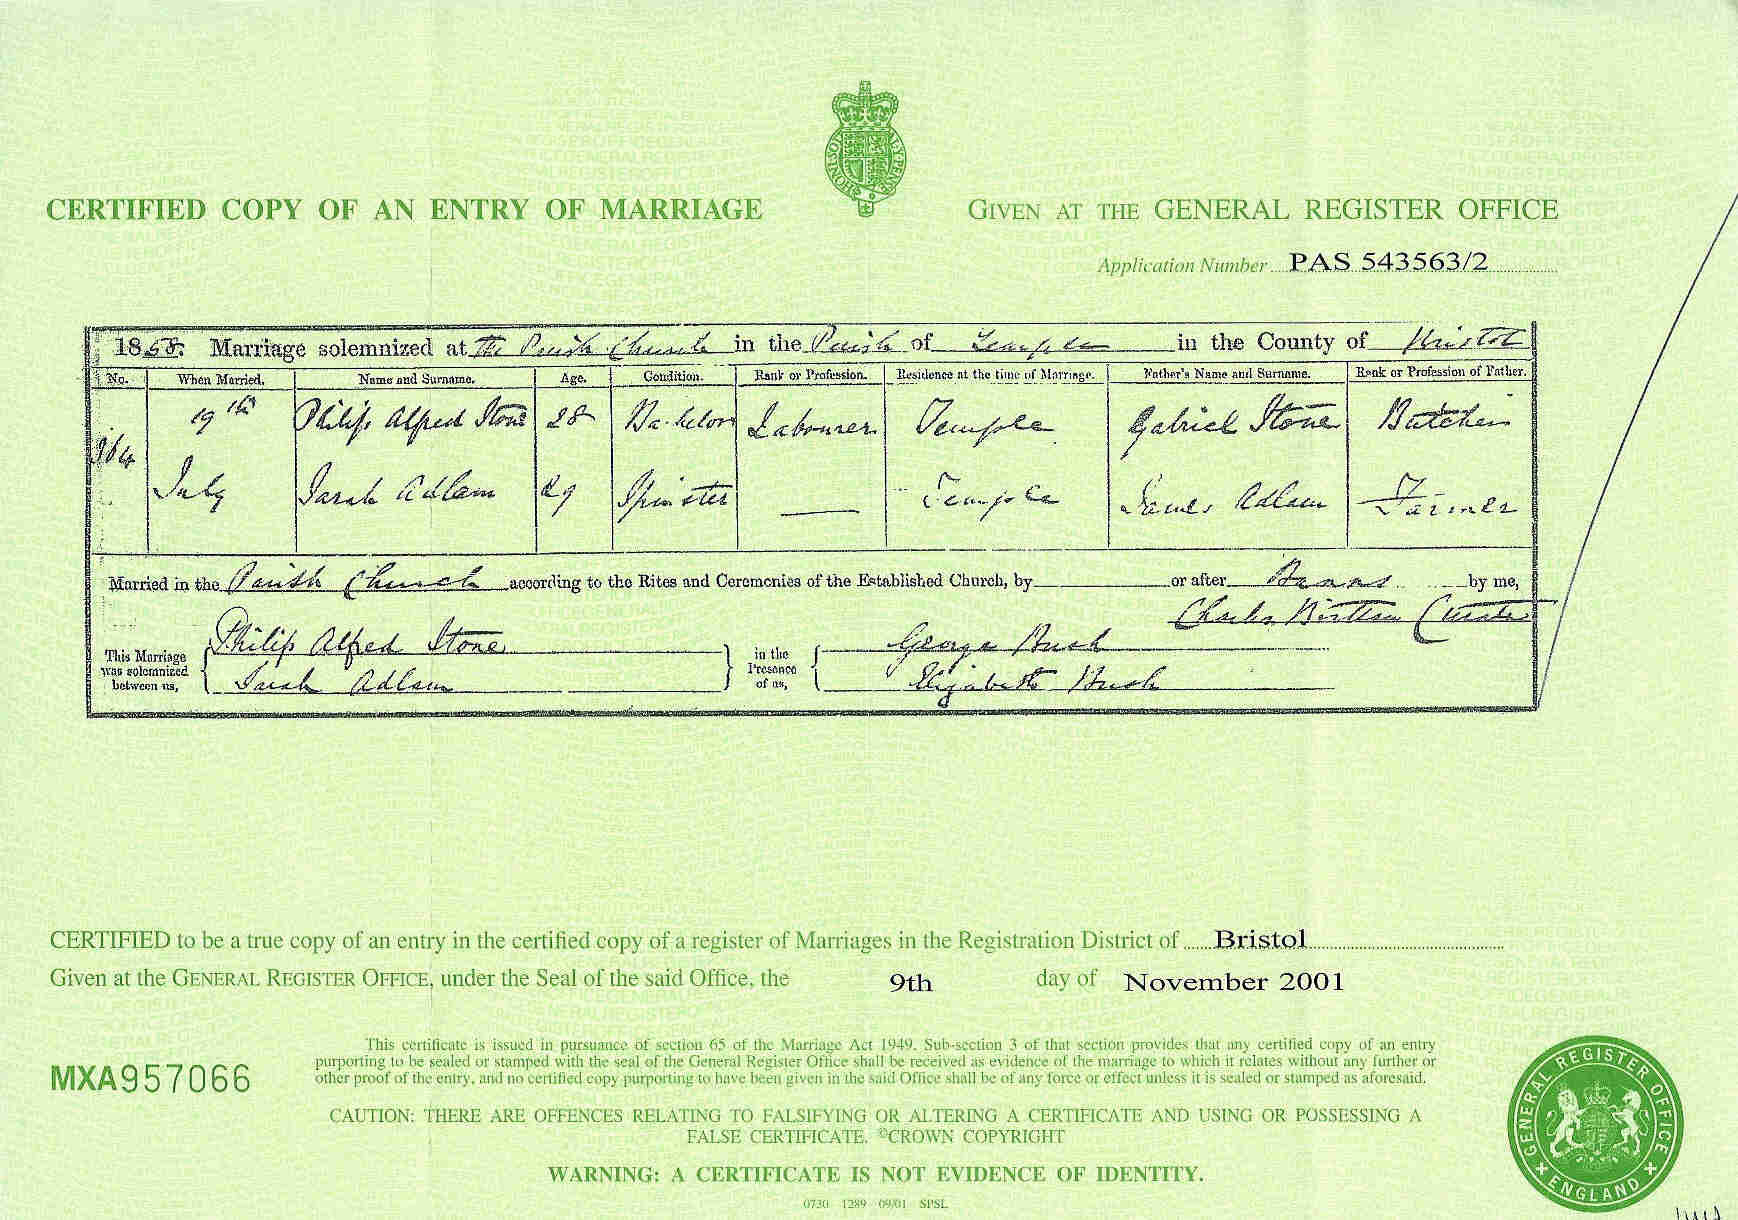 HONI SOIT QUI MAL Y PENSE
CERTIFIED COPY OF AN ENTRY OF MARRIAGE
GIVEN AT THE GENERAL REGISTER OFFICE
Application Number PAS 543563/2
1858. Marriage solemnized at The Parish Church in the Parish of Temple in the County of Bristol
No. When Married. Name and Surname. Age. Condition. Rank or Profession. Residence at the time of Marriage. Father's Name and Surname. Rank or Profession of Father.
19th Philip Alfred Stone 28 Bachelor Labourer Temple Gabriel Stone Butcher
364
July Sarah Adlam 29 Spinster — Temple James Adlam Farmer
Married in the Parish Church according to the Rites and Ceremonies of the Established Church, by or after Banns by me,
Charles Curate
This Marriage was solemnized between us, Philip Alfred Stone Sarah Adlam
in the Presence of us, George Bush Elizabeth Bush
CERTIFIED to be a true copy of an entry in the certified copy of a register of Marriages in the Registration District of Bristol
Given at the GENERAL REGISTER OFFICE, under the Seal of the said Office, the 9th day of November 2001
MXA957066
This certificate is issued in pursuance of section 65 of the Marriage Act 1949. Sub-section 3 of that section provides that any certified copy of an entry
purporting to be sealed or stamped with the seal of the General Register Office shall be received as evidence of the marriage to which it relates without any further or
other proof of the entry, and no certified copy purporting to have been given in the said Office shall be of any force or effect unless it is sealed or stamped as aforesaid.
CAUTION: THERE ARE OFFENCES RELATING TO FALSIFYING OR ALTERING A CERTIFICATE AND USING OR POSSESSING A
FALSE CERTIFICATE. ©CROWN COPYRIGHT
WARNING: A CERTIFICATE IS NOT EVIDENCE OF IDENTITY.
0730 1289 09/01 SPSL
GENERAL REGISTER OFFICE
ENGLAND